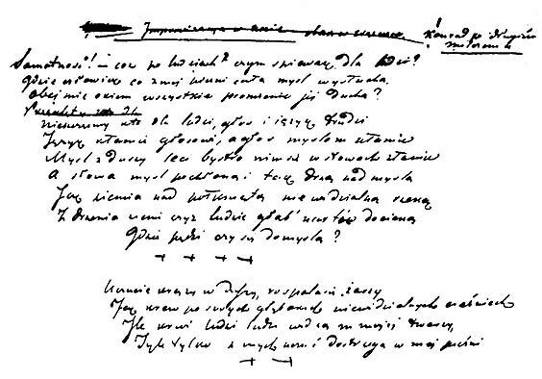 Improwizacja
Samotność! — coż po ludziach? czym śpiewak dla ludzi?
Gdzie człowiek co z mej pieśni całą myśl wysłucha
Obejmie okiem wszystkie promienie jej ducha?
Nieszczęsny kto dla ludzi, głos i język trudzi
Język kłamie głosowi, a głos myślom kłamie
Myśl z duszy leci bystro nim się w słowach złamie
A słowa myśl pochłoną i tak drżą nad myślą
Jak ziemia nad połkniętą niewidzialną rzeką
Z drżenia ziemi czyż ludzie głąb nurtów docieką
Gdzie pędzi czy się domyślą?
+ + + +
Uczucie krąży w duszy, rozpala się żarzy
Jak krew po swych głębokich niewidzialnych
Ile krwi ludzie widzą w mojej twarzy,
Tyle tylko z mych uczuć dostrzegą w mej pieśni
+ +